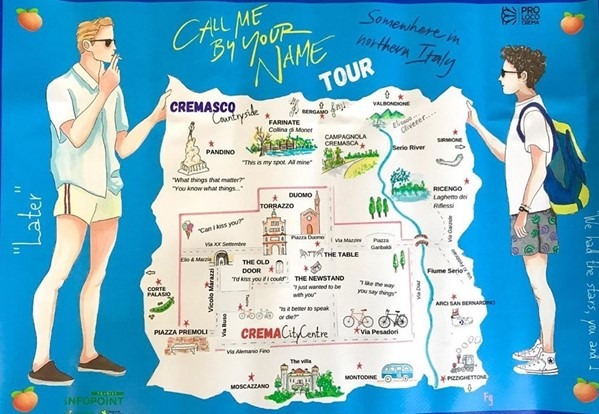 CALL ME
BY YOUR
NAME
TOUR
Somewhere in
northern Italy
PRO
LOCO
CREMA
CREMASCO
Countryside
BERGAMO
VALBONDIONE
FARINATE
Collina di Monet
"This is my spot. All mine"
CAMPAGNOLA
CREMASCA
Serio River
SIRMIONE
PANDINO
"What things that matter?"
"You know what things..."
RICENGO
Laghetto dei
Riflessi
DUOMO
TORRAZZO
"Can I kiss you?"
Via XX Settembre
Piazza Duomo
Via Mazzini
Piazza
Garibaldi
Elio & Marzia
THE OLD
DOOR
"I'd kiss you if I could"
THE TABLE
THE NEWSTAND
"I just wanted to be
with you"
"I like the way
you say things"
Fiume Serio
Vicolo Marazzi
CORTE
PALASIO
Via Buso
"Is it better to speak
or die?"
ARCI SAN BERNARDINO
PIAZZA PREMOLI
CREMA CityCentre
Via Pesadori
Via Alemanio Fino
The villa
MOSCAZZANO
MONTODINE
PIZZIGHETTONE
"Later"
We had the stars, you and I
INFOPOINT
Fg